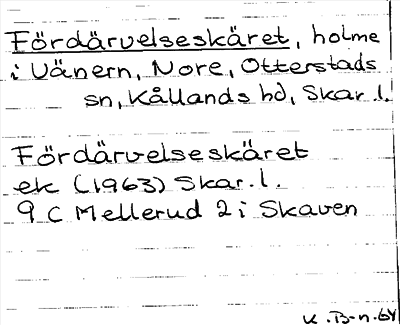 Fördärvelseskäret, holme
i Vänern, Nore, Otterstads
sn, Kållands hd, Skar.l.
Fördärvelseskäret
ek (1963) Skar.l.
9 C Mellerud 2 i Skaven
K.B-n.64